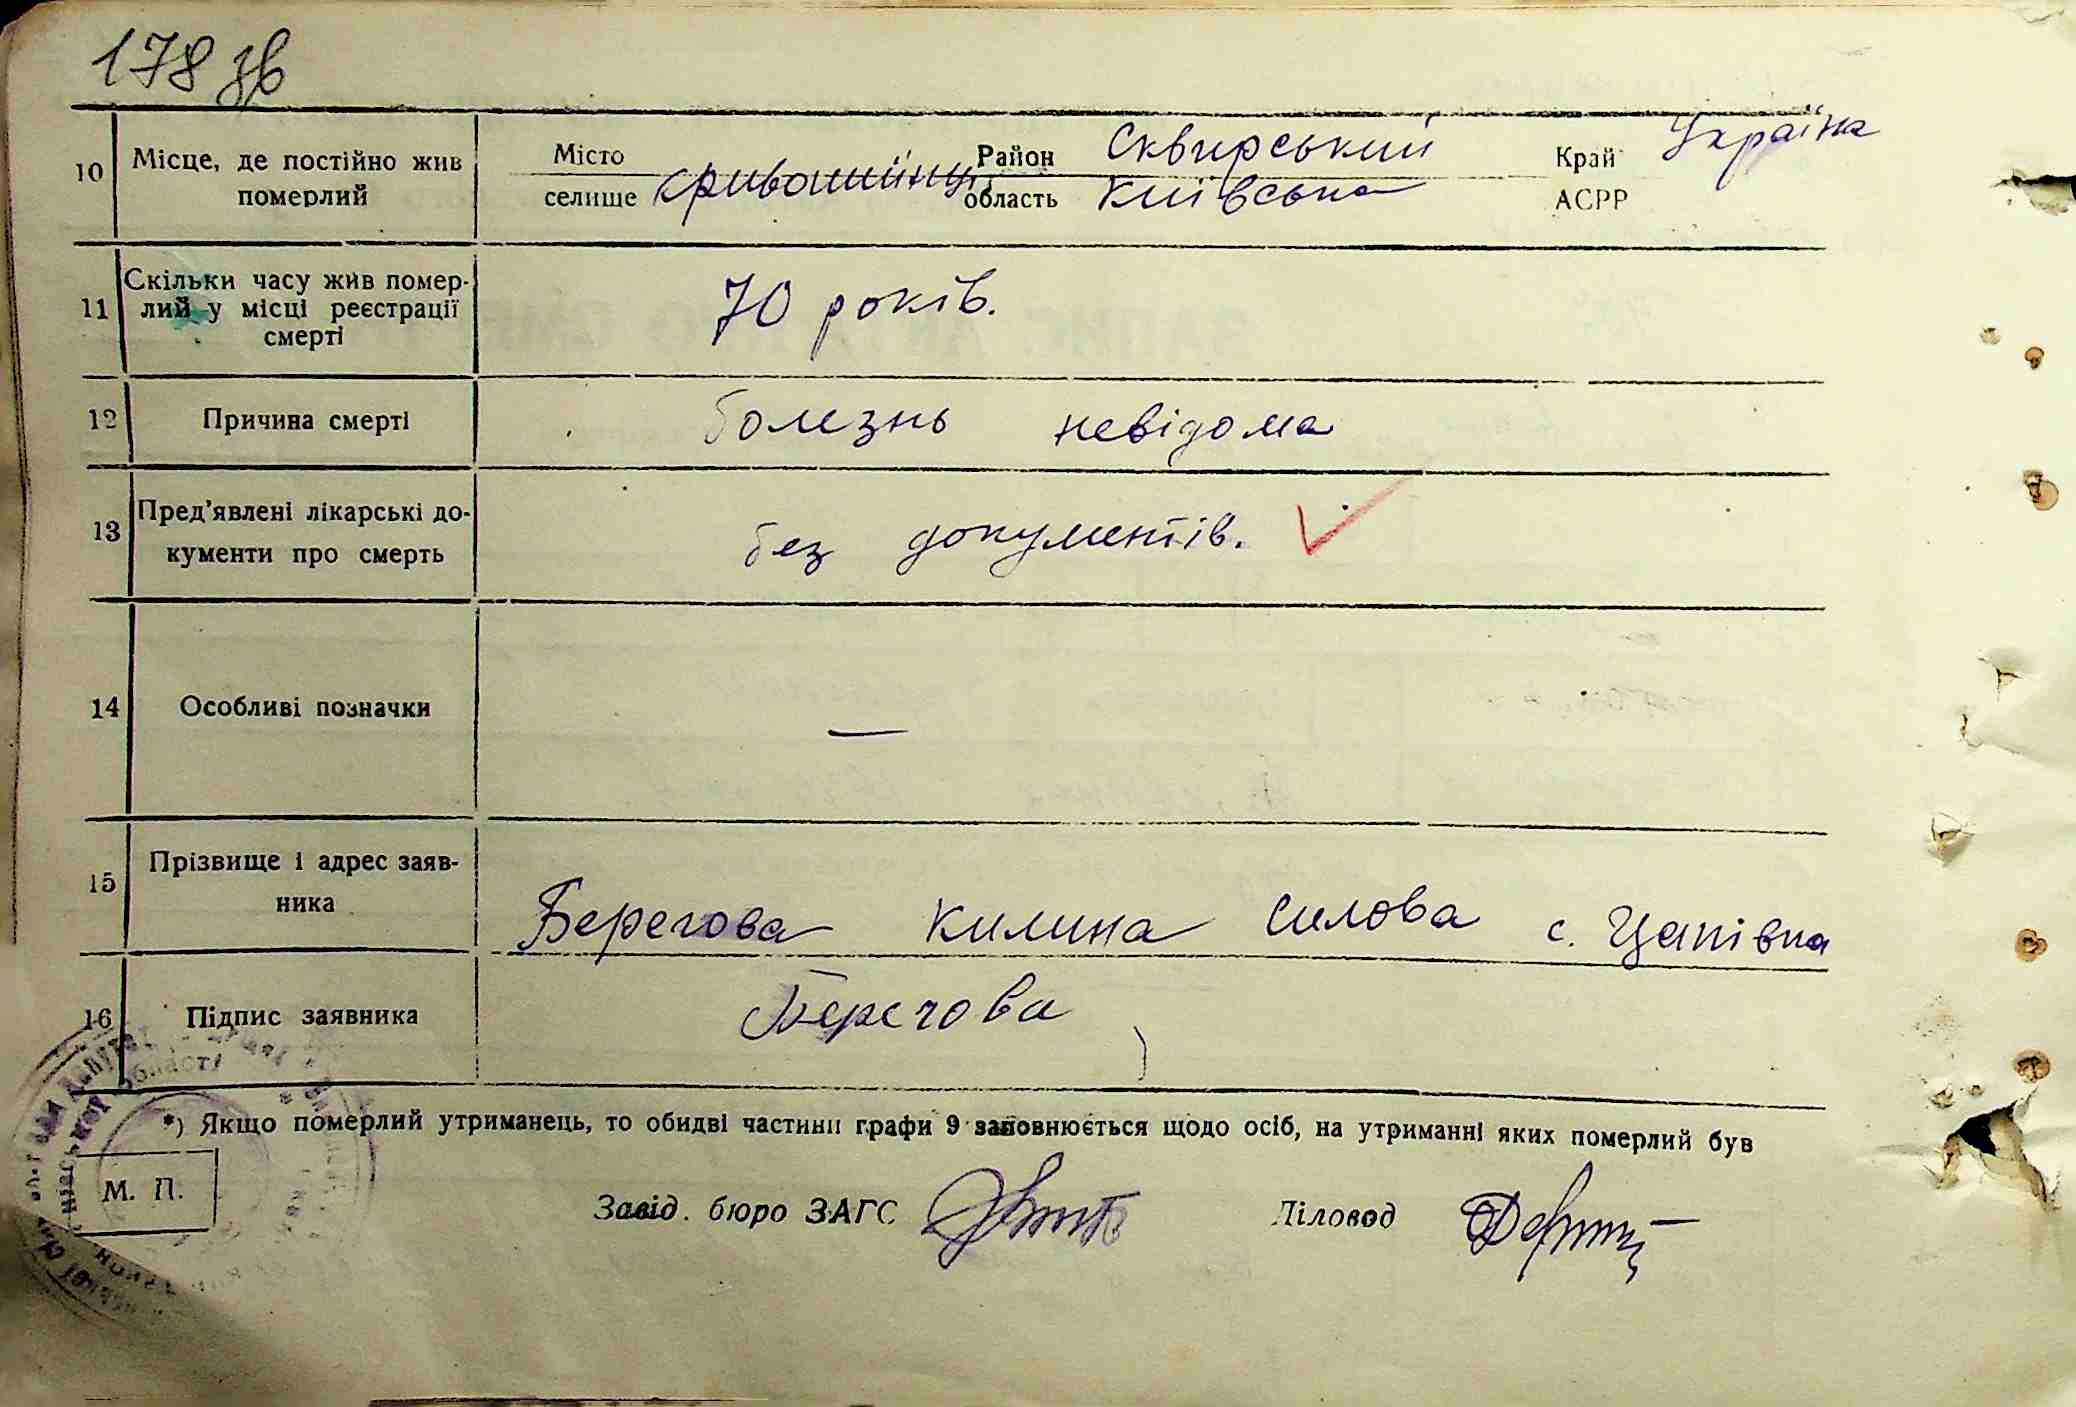 178 зв
10 Місце, де постійно жив померлий
Місто селище Кривошиїнці Район Сквирський область Київська Край АСРР Україна
11 Скільки часу жив помер-
лий у місці реєстрації
смерті
70 років.
12 Причина смерті болезнь невідома
13 Пред'явлені лікарські до-
кументи про смерть
без документів.
14 Особливі позначки —
15 Прізвище і адрес заяв-
ника
Берегова Килина Силова с. Цапівка
16 Підпис заявника Берегова
*) Якщо померлий утриманець, то обидві частини графи 9 заповнюється щодо осіб, на утриманні яких померлий був
М. П.
Завід. бюро ЗАГС Діловод